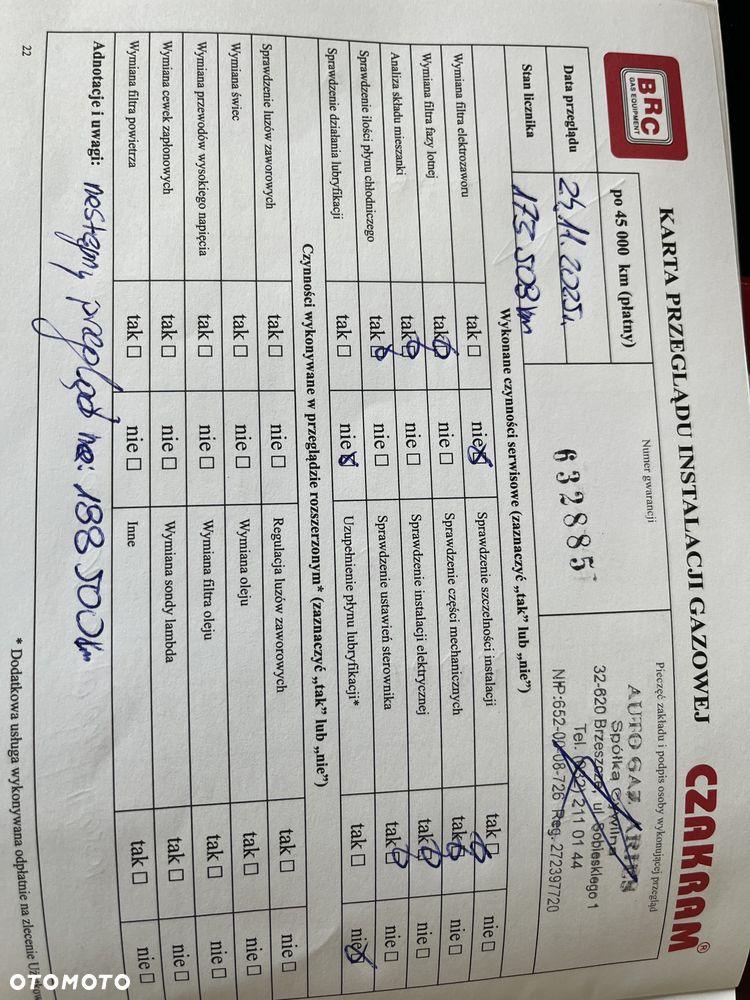 BRC
GAS EQUIPMENT
KARTA PRZEGLĄDU INSTALACJI GAZOWEJ
CZAKRAM®
po 45 000 km (płatny)
Numer gwarancji
Pieczęć zakładu i podpis osoby wykonującej przegląd
Data przeglądu
24.11.2025r.
632885
AUTO GAZ ARIES
Spółka cywilna
32-620 Brzeszcze, ul. Sobieskiego 1
Tel. (032) 211 01 44
NIP:652-00-08-726 Reg. 272397720
Stan licznika
173 503 km
Wykonane czynności serwisowe (zaznaczyć „tak” lub „nie”)
Wymiana filtra elektrozaworu tak nie Sprawdzenie szczelności instalacji tak nie
Wymiana filtra fazy lotnej tak nie Sprawdzenie części mechanicznych tak nie
Analiza składu mieszanki tak nie Sprawdzenie instalacji elektrycznej tak nie
Sprawdzenie ilości płynu chłodniczego tak nie Sprawdzenie ustawień sterownika tak nie
Sprawdzenie działania lubryfikacji tak nie Uzupełnienie płynu lubryfikacji* tak nie
Czynności wykonywane w przeglądzie rozszerzonym* (zaznaczyć „tak” lub „nie”)
Sprawdzenie luzów zaworowych tak nie Regulacja luzów zaworowych tak nie
Wymiana świec tak nie Wymiana oleju tak nie
Wymiana przewodów wysokiego napięcia tak nie Wymiana filtra oleju tak nie
Wymiana cewek zapłonowych tak nie Wymiana sondy lambda tak nie
Wymiana filtra powietrza tak nie Inne tak nie
Adnotacje i uwagi: następny przegląd na: 188 500 km
* Dodatkowa usługa wykonywana odpłatnie na zlecenie
22
OTOMOTO